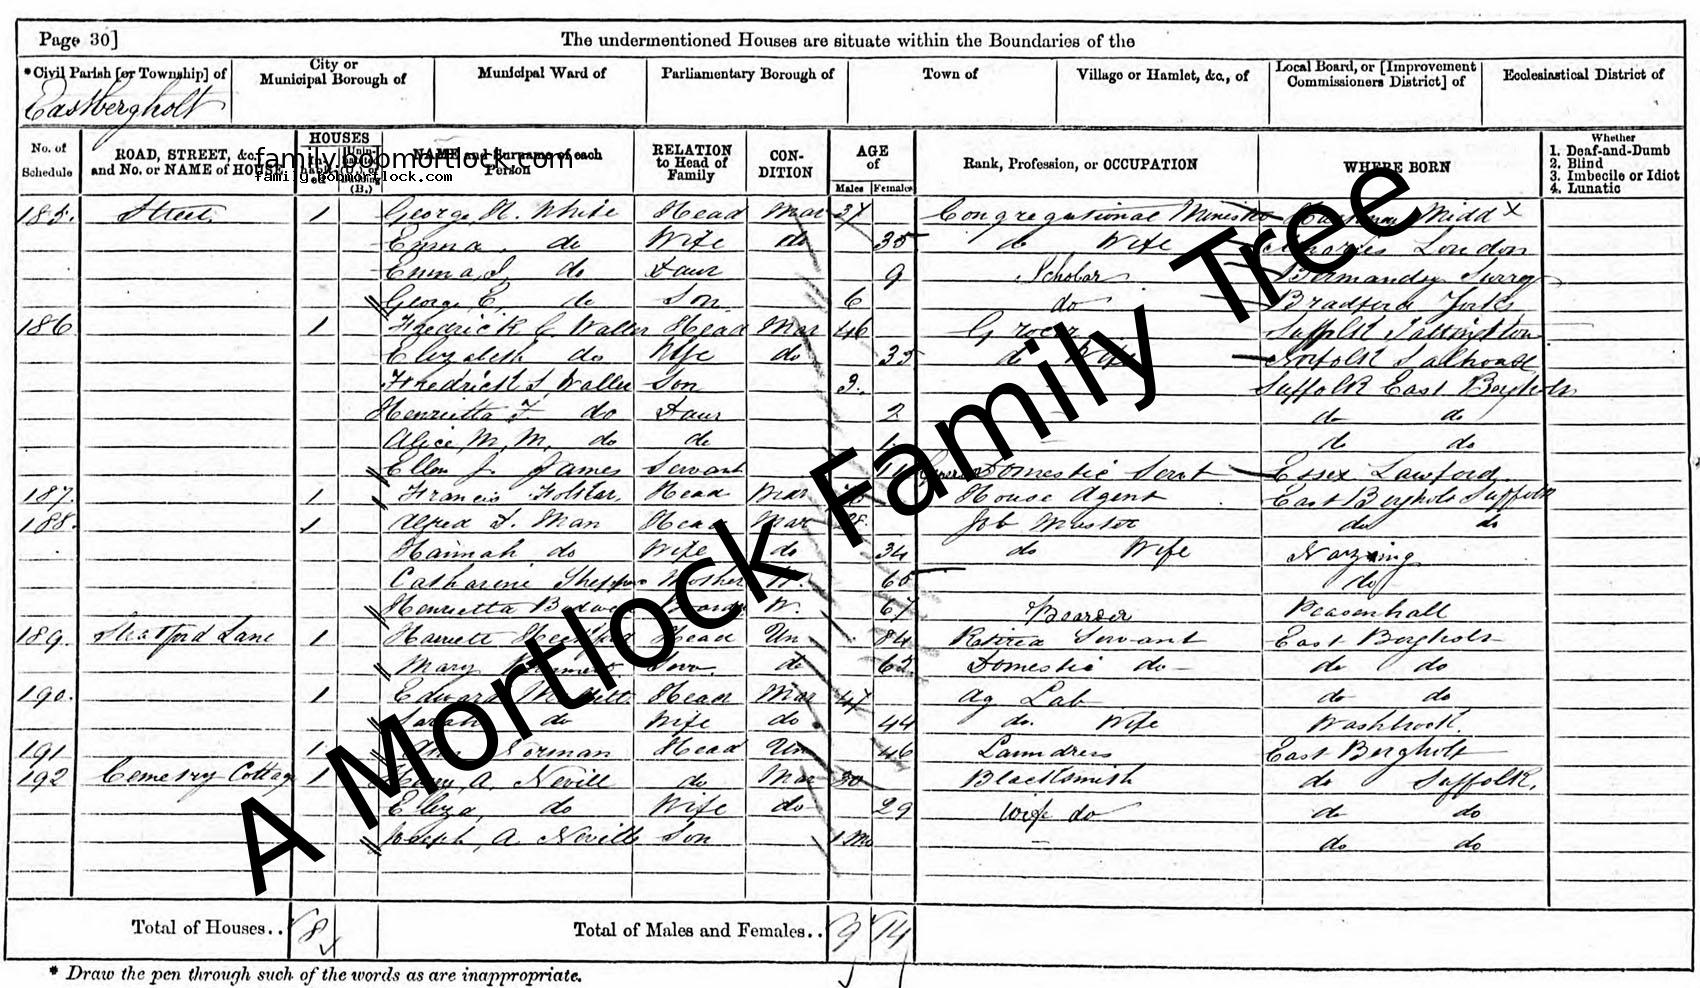 Page 30] The undermentioned Houses are situate within the Boundaries of the
*Civil Parish [or Township] of City or Municipal Borough of Municipal Ward of Parliamentary Borough of Town of Village or Hamlet, &c., of Local Board, or [Improvement Commissioners District] of Ecclesiastical District of
Eastbergholt
No. of Schedule ROAD, STREET, &c., and No. or NAME of HOUSE HOUSES NAME and Surname of each Person RELATION to Head of Family CON-DITION AGE of Males Females Rank, Profession, or OCCUPATION WHERE BORN Whether 1. Deaf-and-Dumb 2. Blind 3. Imbecile or Idiot 4. Lunatic
family.bobmortlock.com
family.bobmortlock.com
185. Street 1 George H. White Head Mar 37 Congregational Minister Midd x
Emma do Wife do 35 do Wife London
Emma do Daur 9 Scholar Bermondsey Surrey
George E. do Son 6 do Bradford Yorks
186 1 Fredrick C Waller Head Mar 46 Grocer Suffolk Tattingston
Elizabeth do Wife do 35 do Wife Norfolk
Fredrick Waller Son 3. Suffolk East Bergholt
Henrietta do Daur 2 do do
Alice M. M. do do 1 do do
Ellen J. James Servant Domestic Servt Essex Lawford
187. 1 Francis Head Mar House Agent East Bergholt Suffolk
188. 1 Alfred Man Head Mar 28 Job Master do do
Hannah do Wife do 34 do Wife
Catharine Mother W. 65 do
Henrietta W. 67 Boarder Peasenhall
189. Stratford Lane 1 Harriett Head Un 84 Retired Servant East Bergholt
Mary Serv. do 65 Domestic do do do
190. 1 Edward Head Mar 47 Ag Lab do do
Sarah do Wife do 44 do. Wife Washbrook
191 1 Norman Head Un 46 Laundress East Bergholt
192 Cemetry Cottage 1 A. Nevill do Mar 30 Blacksmith do Suffolk.
Eliza, do Wife do 29 Wife do do do
Joseph A Neville Son 1 Mo do do
Total of Houses.. 8 Total of Males and Females.. 9 14
* Draw the pen through such of the words as are inappropriate.
A Mortlock Family Tree